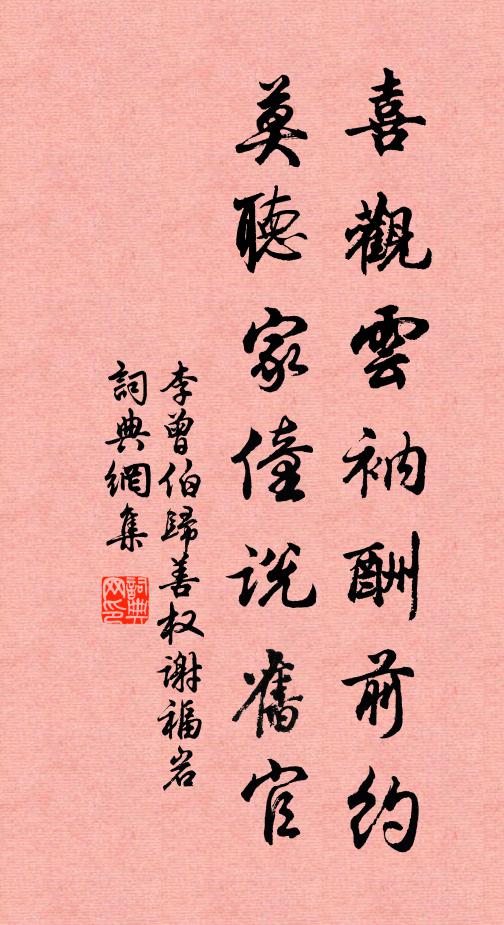 喜觀雲衲酬前約
莫聽家僮説舊官
李曾伯歸善权谢福岩
詞典網集
詞典网印